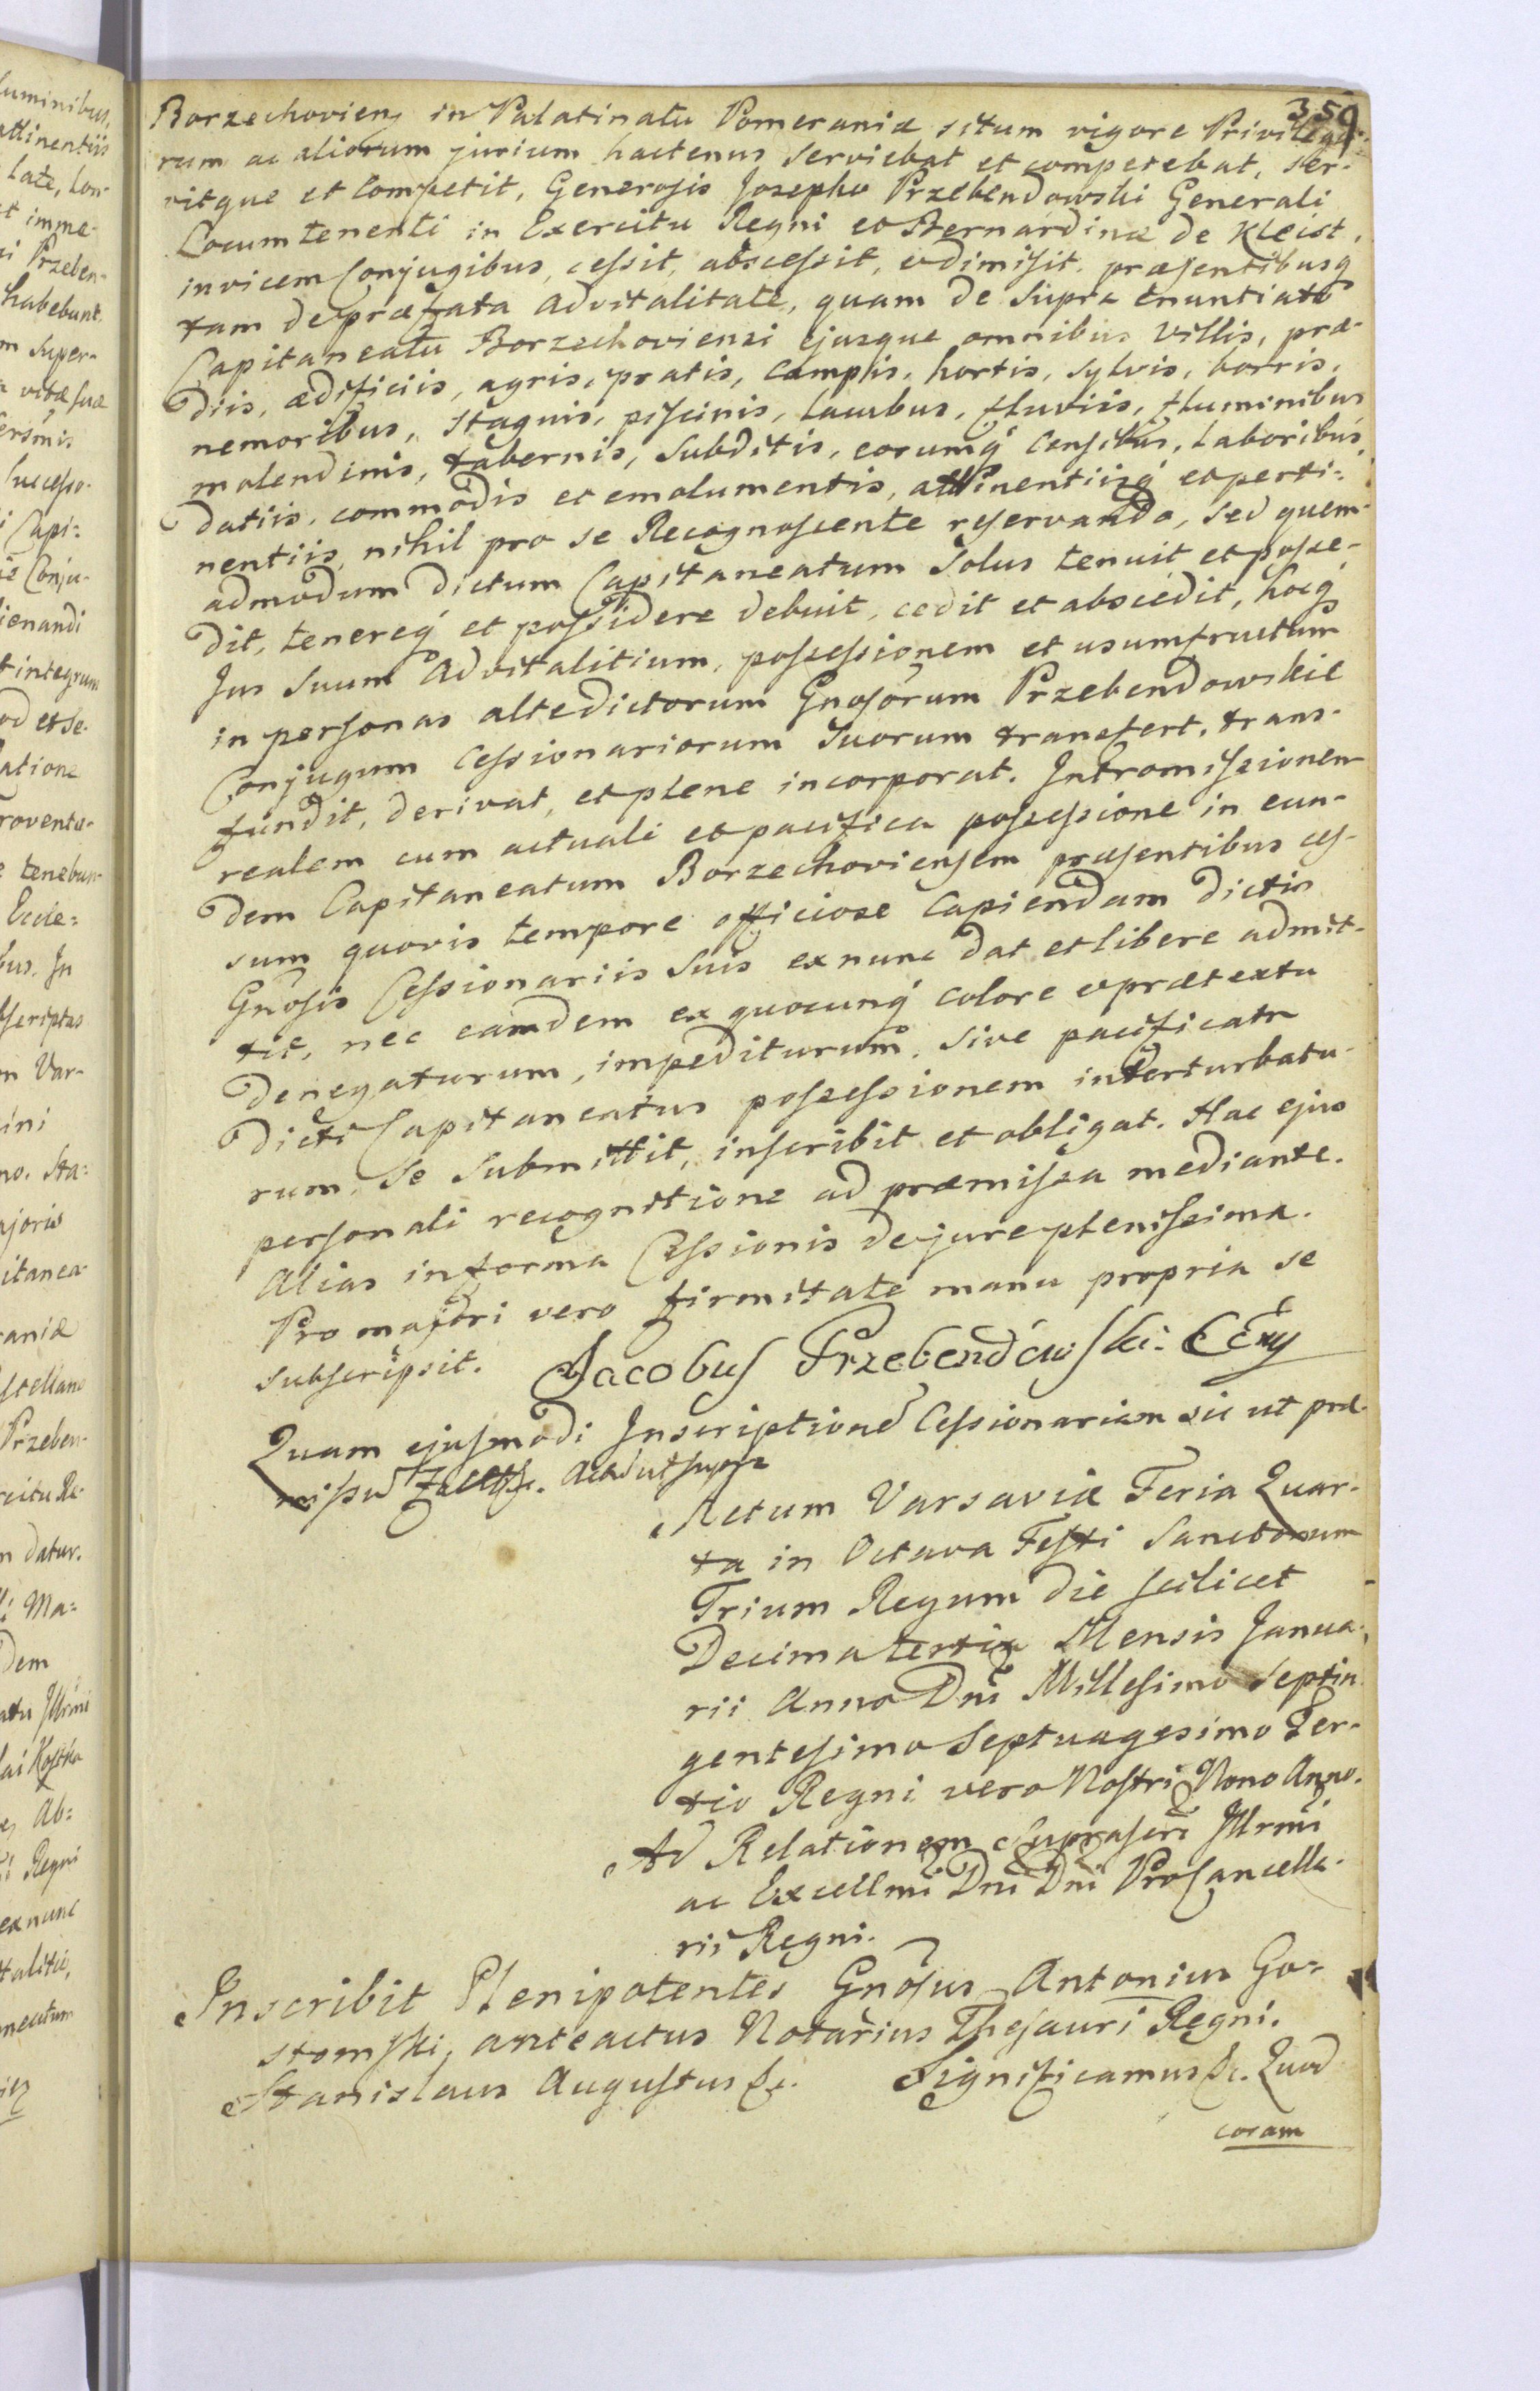 359
Borzechovien̄ in Palatinatu Pomeraniæ situm vigore Privilegio-
rum ac aliorum jurium hactenus serviebat et competebat, ser-
vitque et competit, Generosis Josepho Przebendowski Generali
Locumtenenti in Exercitu Regni et Bernardinæ de Kleist,
invicem Conjugibus, cessit, abscessit, et dimisit, præsentibusq́
tam de præfata advitalitate, quam de supra enuntiato
Capitaneatu Borzechoviensi ejusque omnibus villis, præ-
diis, ædificiis, agris, pratis, campis, hortis, sylvis, borris,
nemoribus, stagnis, piscinis, lacubus, fluviis, fluminibus
molendinis, tabernis, subditis, eorumq́ censibus, laboribus,
datiis, commodis et emolumentis, attinentiisq́ et perti-
nentiis, nihil pro se Recognoscente reservando, sed quem-
admodum dictum Capitaneatum solus tenuit et posse-
dit, tenereq́ et possidere debuit, cedit et abscedit, hocq́
Jus suum advitalitium, possessionem et usumfructum
in personas altedictorum Gnosorum Przebendowskie
Conjugum Cessionariorum suorum transfert, trans-
fundit, derivat, et plene incorporat. Intromissionem
realem cum actuali et pacifica possessione in eun-
dem Capitaneatum Borzechoviensem præsentibus ces-
sum quovis tempore officiose capiendam dictis
Gnosis Cessionariis suis ex nunc dat et libere admit-
tit, nec eamdem ex quocunq́ colore et prætextu
denegaturum, impediturum, sive pacificam
dicti Capitaneatus possessionem interturbatu-
rum, se submittit, inscribit et obligat. Hac ejus
personali recognitione ad præmissa mediante.
Alias in forma Cessionis de jure plenissima.
Pro majori vero firmitate manu propria se
subscripsit. Jacobus Przebendowski
Quam ejusmodi Inscriptionē Cessionariam sic ut præ-
missū ut supra
Actum Varsaviæ Feria Quar-
ta in Octava Festi Sanctorum
Trium Regum die scilicet
Decima tertia Mensis Janua-
rii Anno Dn̄i Millesimo Septin
gentesimo Septuagesimo Ter-
tio Regni vero Nostri Nono Anno.
Ad Relationem Suprascrī Illrmi
ac Excellmi Dn̄i Dn̄i Procancella-
rii Regni.
Inscribit Plenipotentes Gnōsus Antonius Go-
stomski, anteactus Notarius Thesauri Regni.
Stanislaus Augustus &c. Significamus &c. Quod
coram